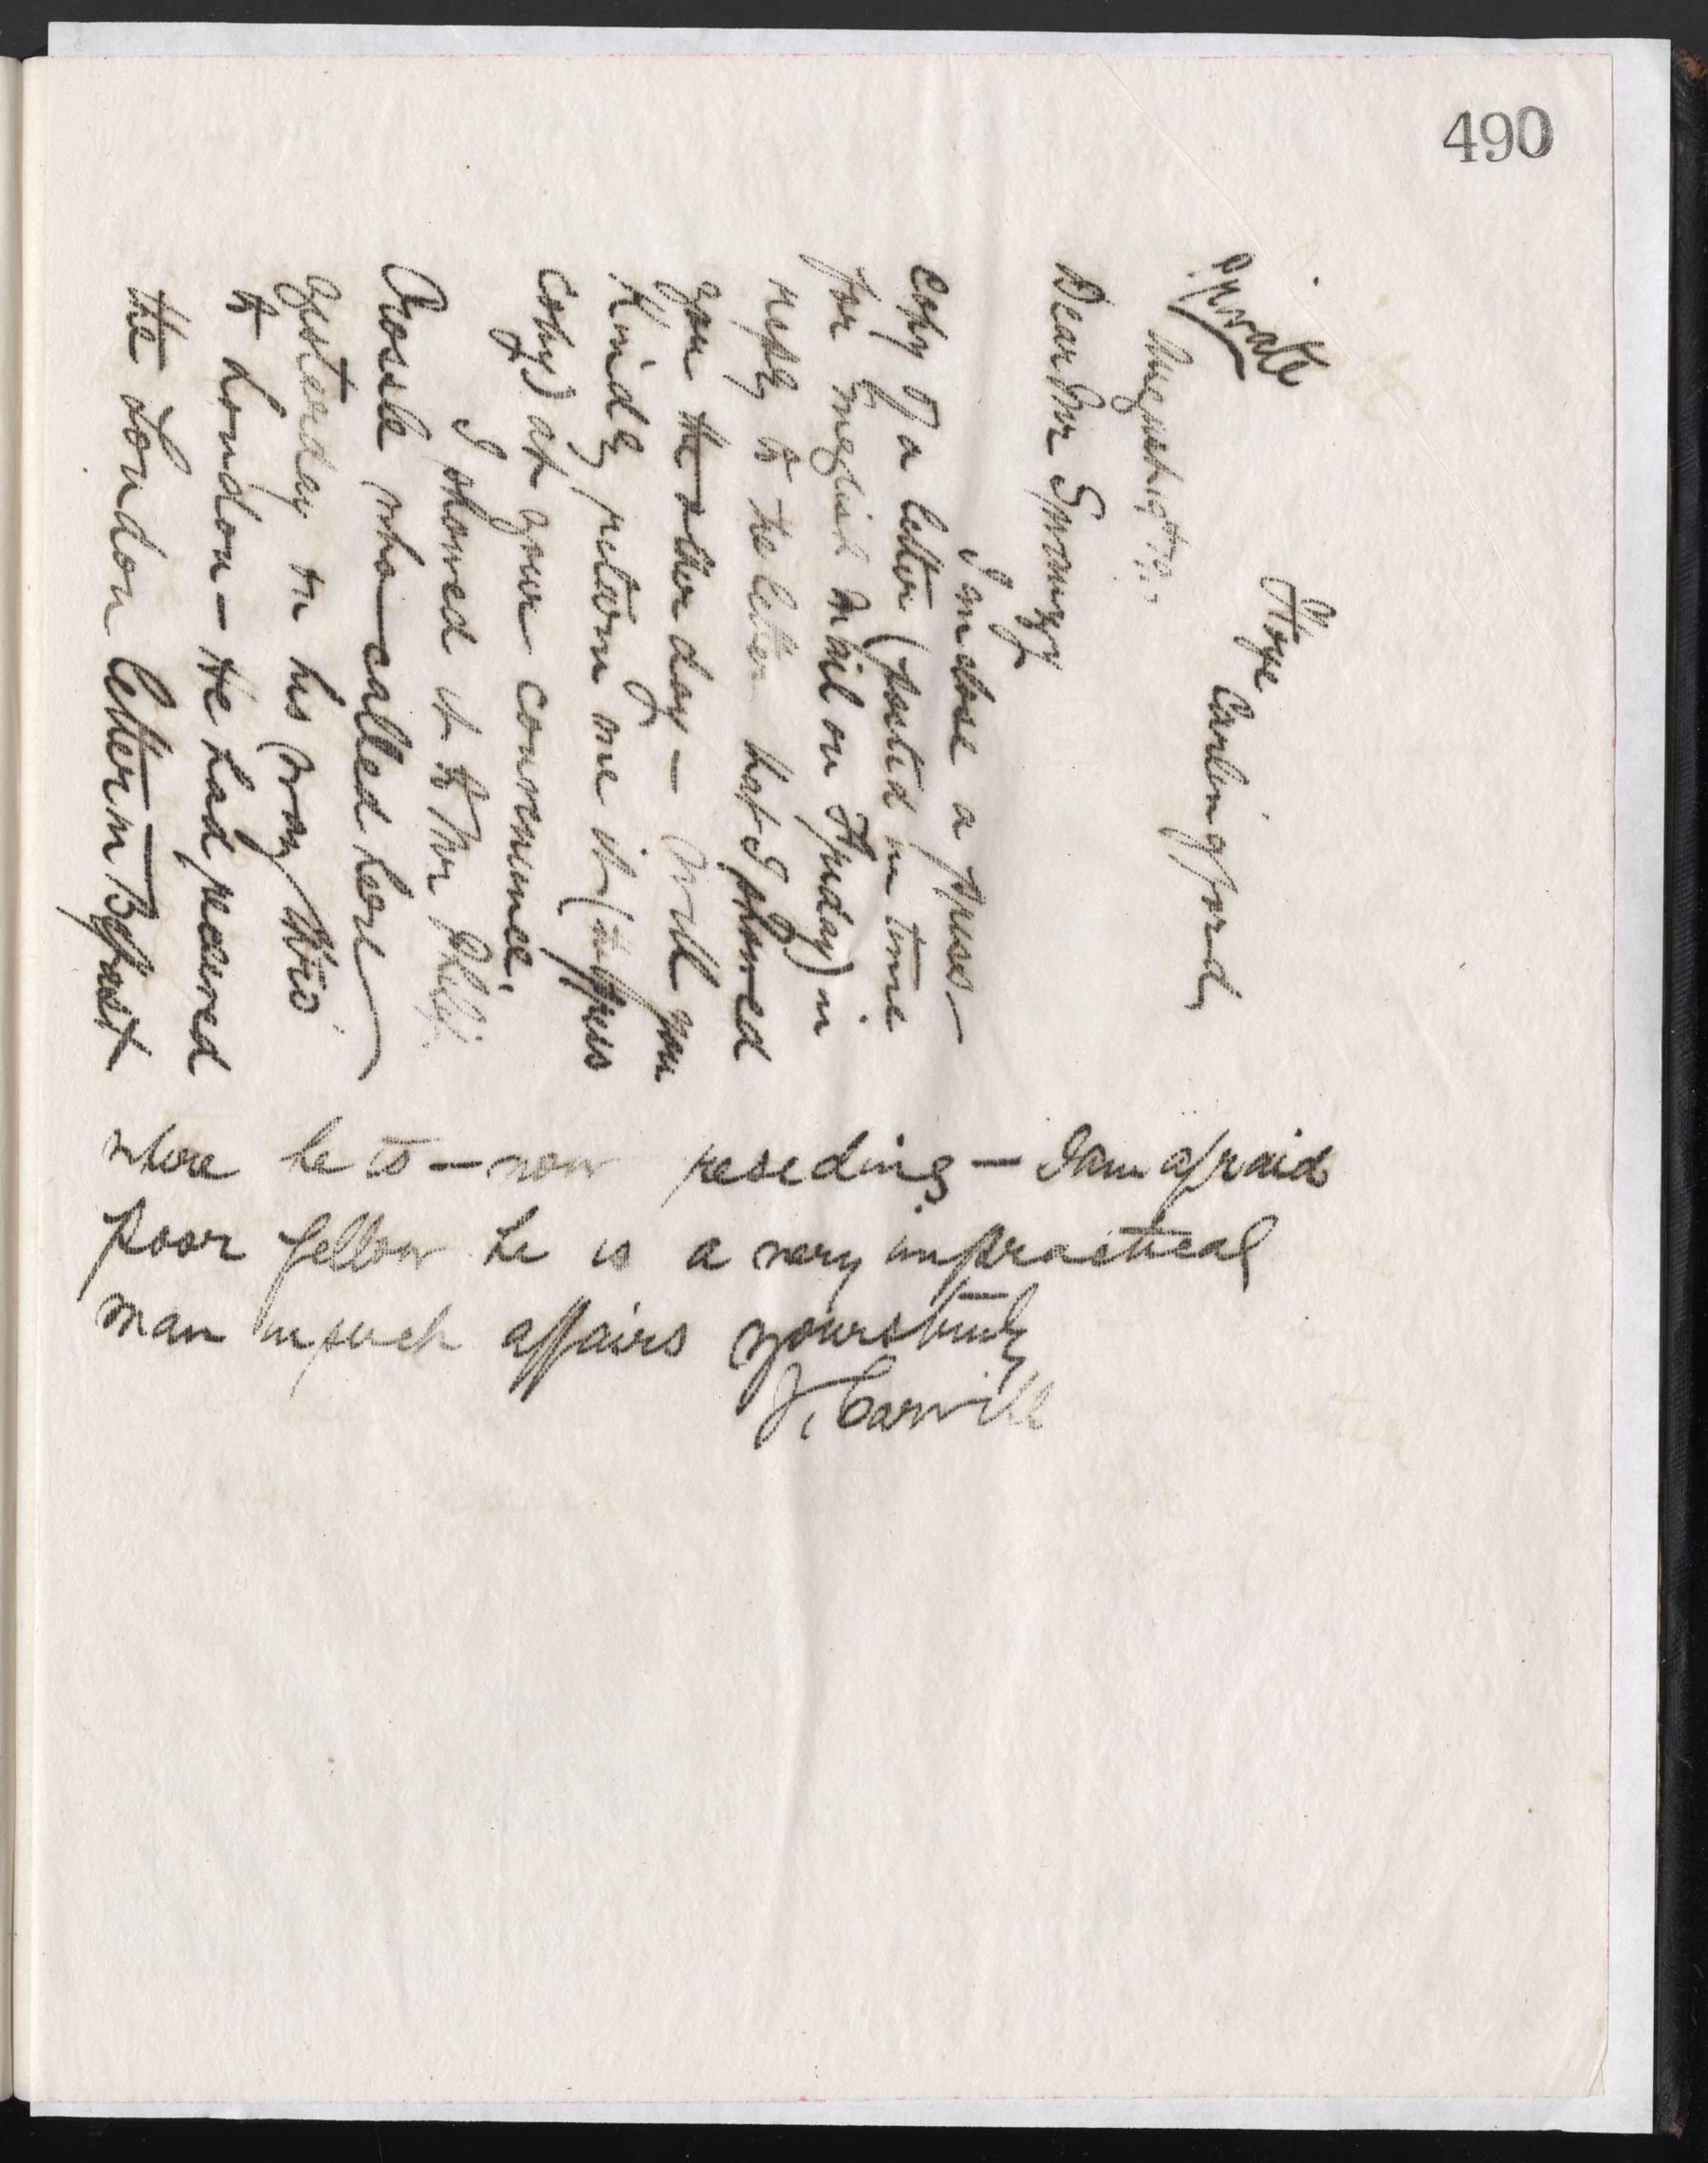 490
Private
Hope
Carlingford
August
Dear Mr
I inclose a press—
copy of a letter (posted in time
for English mail on Friday) in
reply to the letter that I showed
you the other day — Will you
kindly return me it (the press
copy) at your convenience.
I showed it to Mr
Crossle who—called here
yesterday on his way
to London — He had received
the London letter in Belfast
where he is — now residing — I am afraid
poor fellow he is a very impractical
man in such affairs yours truly
J. Carvill